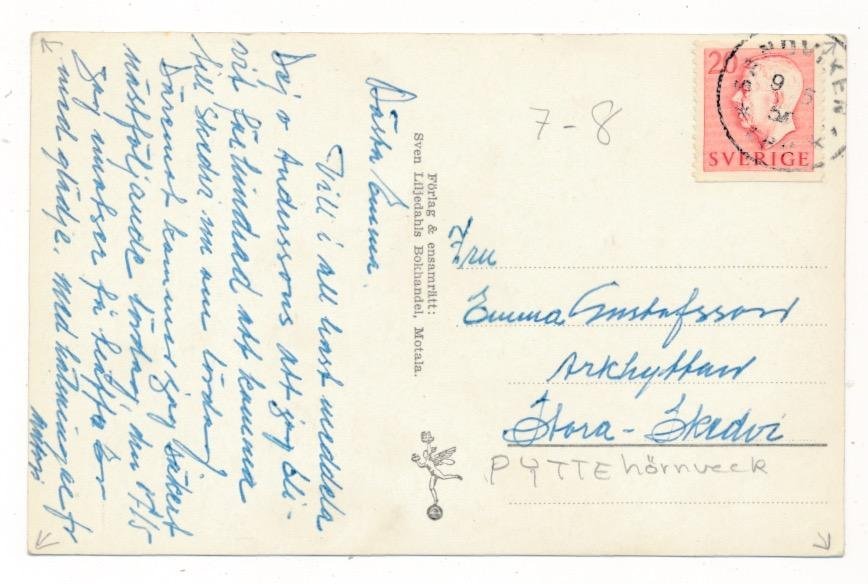 Bästa Emma.
Vill i all hast meddela
Dej o Anderssons att jag bli-
vit förhindrad att komma
till Skedvi nu om lördag
Däremot kommer jag säkert
nästföljande lördag den 15/5
Jag emotser få träffa Er
med glädje. Med hälsningar fr
Förlag & ensamrätt:
Sven Liljedahls Bokhandel, Motala.
7-8
20
SVERIGE
SANDVIKEN
9 5 54
Fru
Emma Gustafsson
Arkhyttan
Stora-Skedvi
PYTTE hörnveck